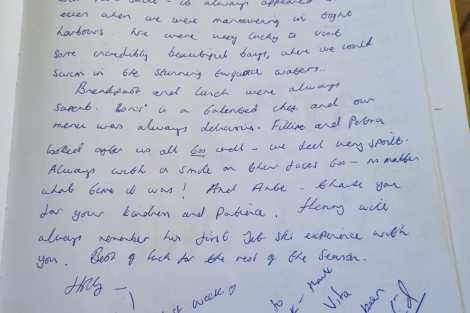 it always appeared
even when we were manoeuvring in tight
harbours. We were very lucky to visit
some incredibly beautiful bays, where we could
swim in the stunning turquoise waters.
Breakfast and lunch were always
superb. is a talented chef and our
menu was always delicious. and
looked after us all too well - we feel very spoilt.
Always with a smile on their faces too - no matter
what time it was! And Ante - thank you
for your kindness and patience. Henry will
always remember his first Jet ski experience with
you. Best of luck for the rest of the season.
Holly -
week
to
thank
Vita